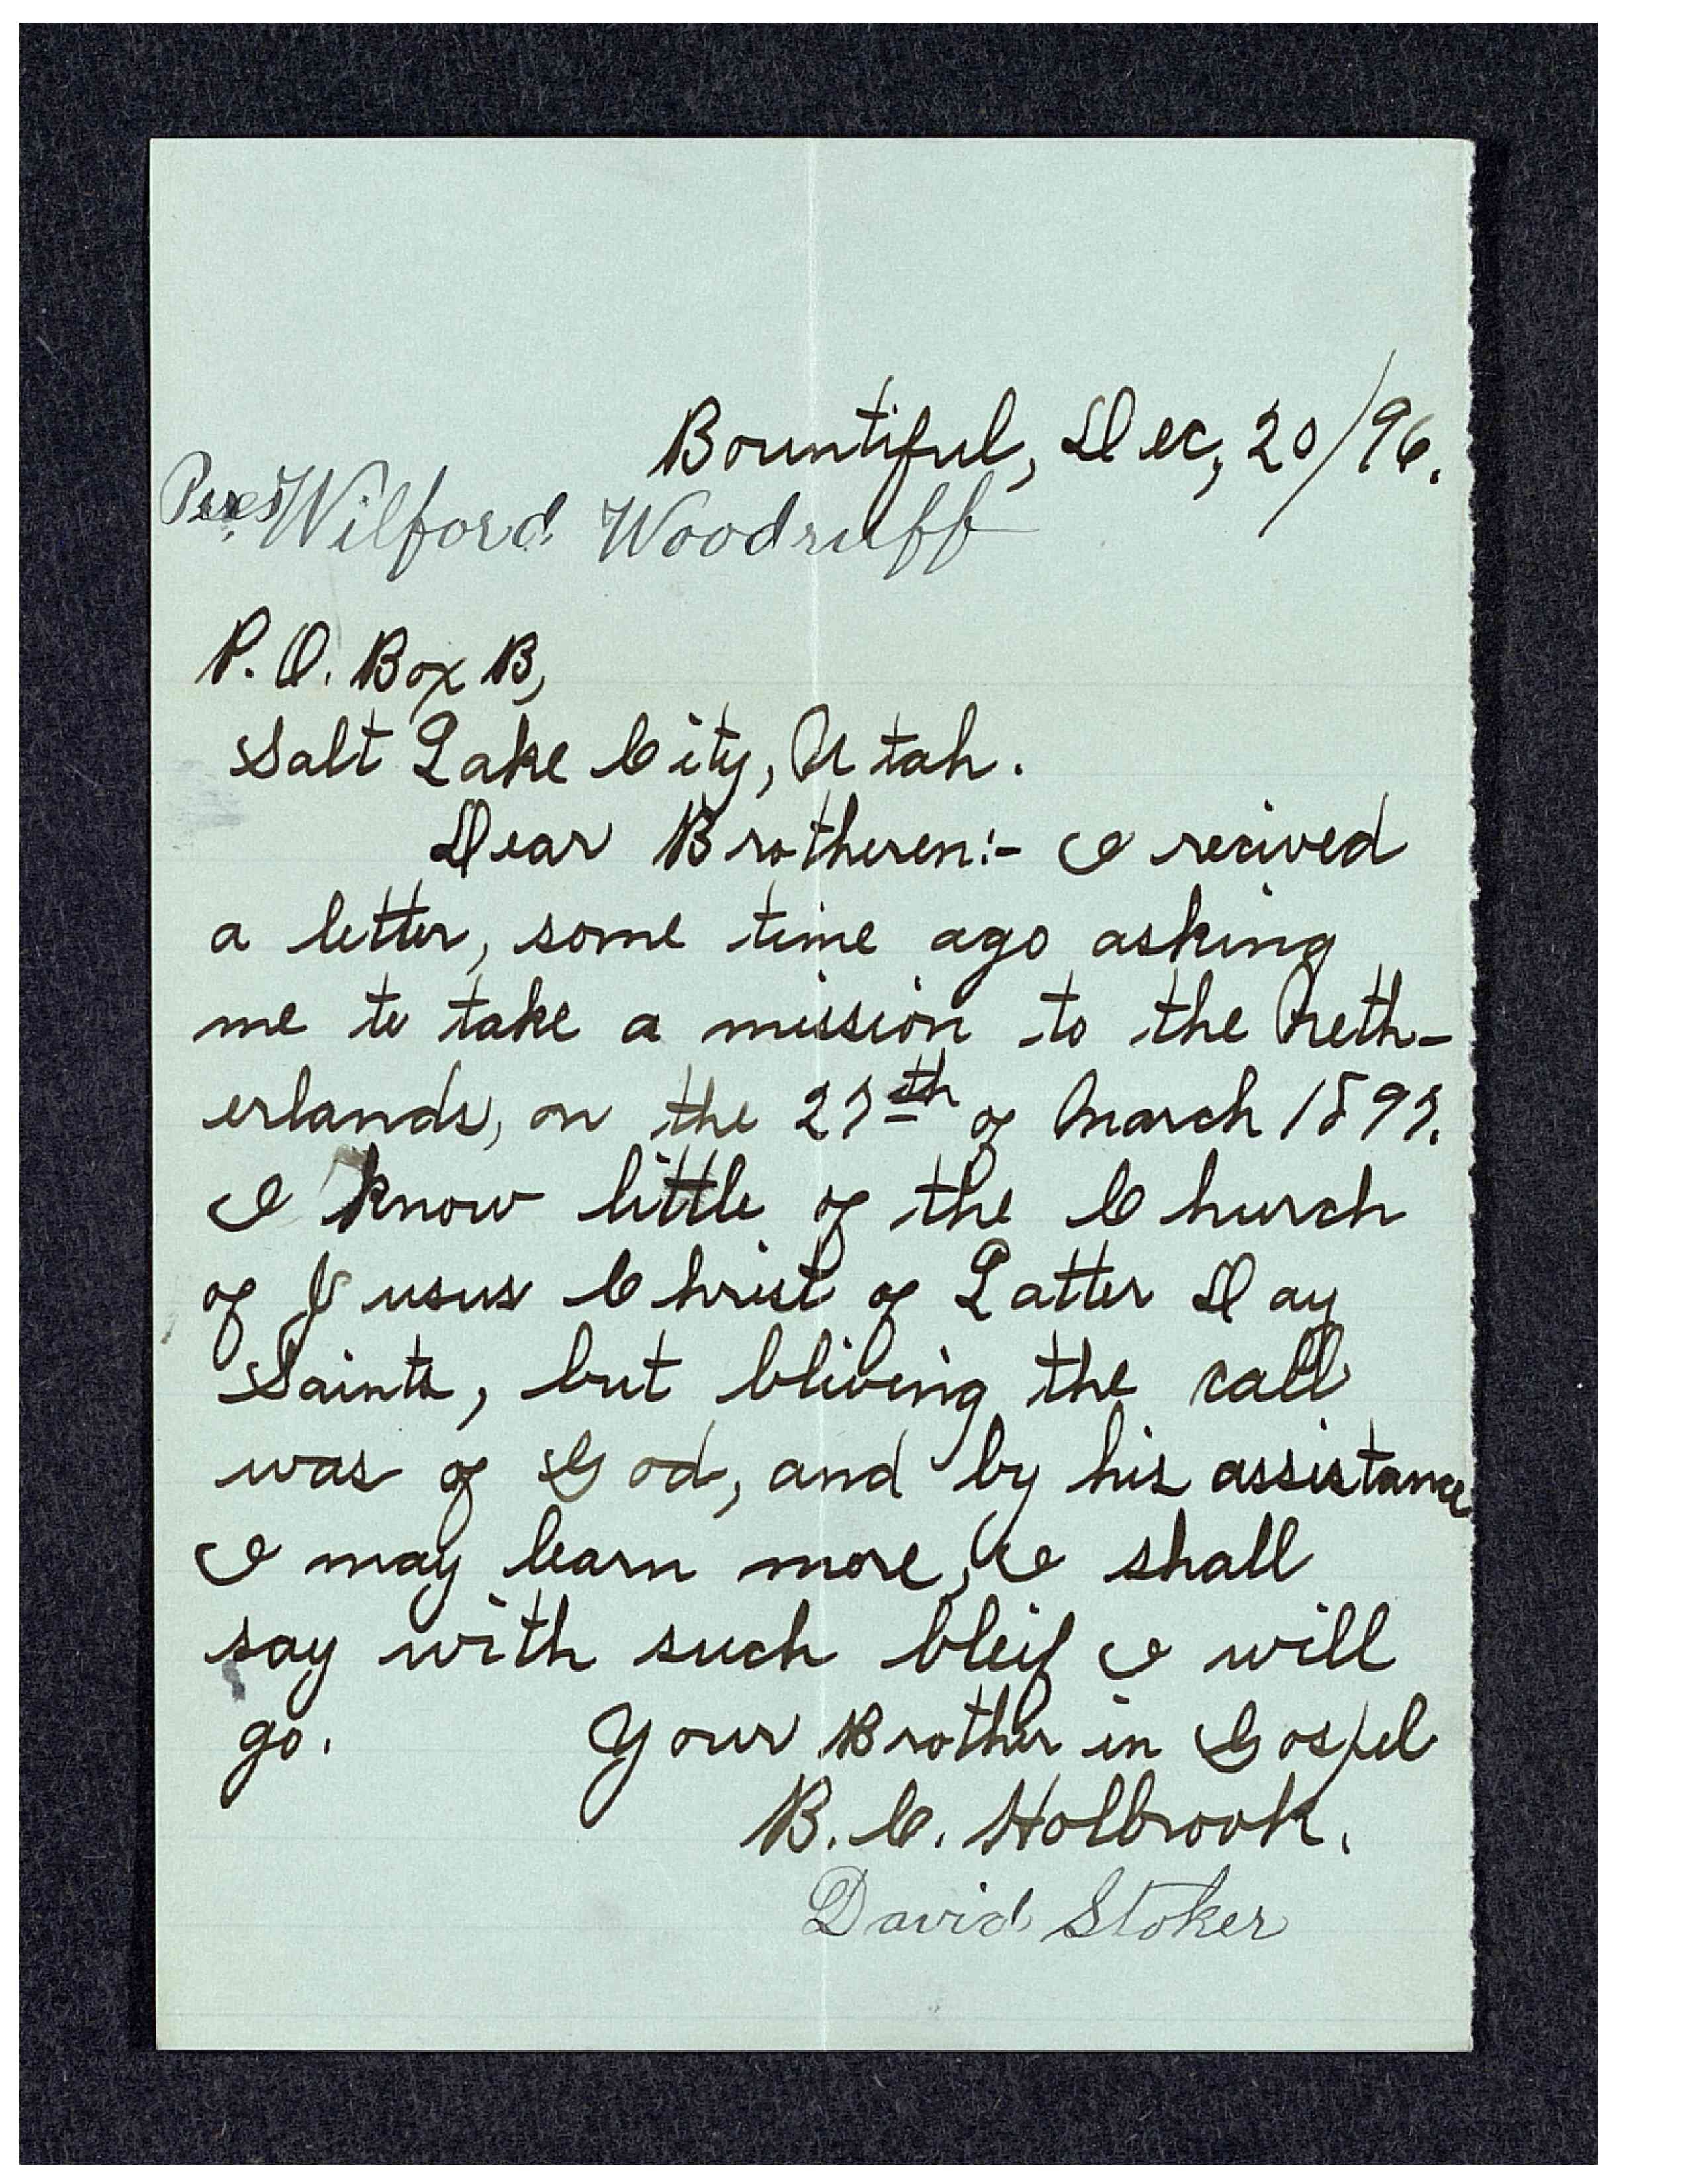 Bountiful, Dec, 20/96.
Pres. Wilford Woodruff
P. O. Box B,
Salt Lake City, Utah.
Dear Brotheren:- I recived
a letter, some time ago asking
me to take a mission to the Neth-
erlands, on the 27th of March 1897.
I know little of the Church
of Jusus Christ of Latter Day
Saints, but bliving the call
was of God, and by his assistance
I may learn more, I shall
say with such bleif I will
go. Your Brother in Gospel
B. C. Holbrook.
David Stoker